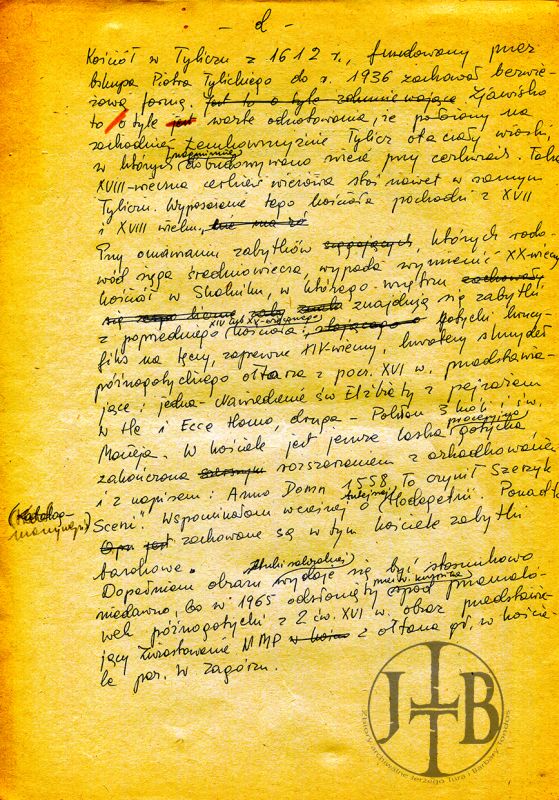 - d -
Kościół w Tyliczu z 1612 r., fundowany przez
biskupa Piotra Tylickiego do r. 1936 zachował bezwie-
żową formę. jest to o tyle zdumiewające Zjawisko
to o tyle jest warte odnotowania, że położony na
zachodniej Łemkowszczyźnie Tylicz otaczały wioski,
w których nagminnie dobudowywano wieże przy cerkwiach. Taka
XVIII-wieczna cerkiew wieżowa stoi nawet w samym
Tyliczu. Wyposażenie tego kościoła pochodzi z XVII
i XVIII wieku,
Przy omawianiu zabytków sięgających, których rodo-
wód sięga średniowiecza, wypada wymienić XX-wieczny
kościół w Skalniku, w którego wnętrzu zachowały
się znajdują się zabytki
z poprzedniego XIV lub XV-wiecznego kościoła: gotycki krucy-
fiks na tęczy, zapewne XIV-wieczny, kwatery skrzydeł
późnogotyckiego ołtarza z pocz. XVI w. przedstawia-
jące: jedna - Nawiedzenie św Elżbiety z pejzażem
w tle i Ecce Homo, druga - Pokłon 3 króli i św.
Macieja. W kościele jest jeszcze laska procesyjna gotycka
zakończona rozszerzeniem z arkadkowaniem
i z napisem: Anno Domn 1558, To czynił Szczęzyk
Sceni". Wspominałam wcześniej o Hodegetrii. Ponadto
zachowane są w tym kościele zabytki
barokowe.
Dopełnieniem obrazu sztuki sakralnej wydaje się być stosunkowo
niedawno, bo w 1965 odsłonięty spod przemalo-
wek późnogotycki z 2 ćw. XVI w. obraz przedstawia-
jący Zwiastowanie NMP w kości z ołtarza gł. w kościele
le par. w Zagórzu.
JTB
Zbiory archiwalne Jerzego Tura i Barbary Tondos